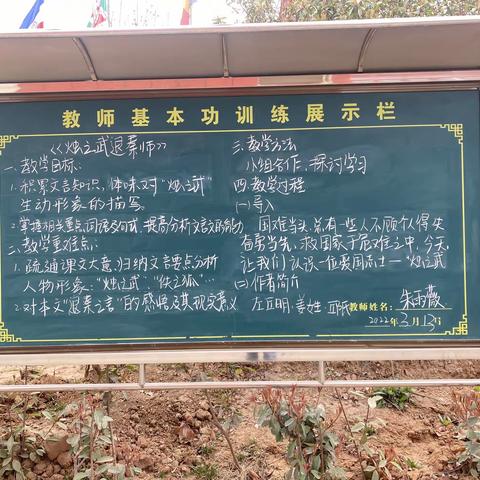 教师基本功训练展示栏
《烛之武退秦师》
一、教学目标：
1. 积累文言知识，体味对“烛之武”
生动形象的描写。
2. 掌握相关重点词语及句式，提高分析文言文的能力
二、教学重难点：
1. 疏通课文大意，归纳文言要点，分析
人物形象：“烛之武”、“佚之狐”…
2. 对本文“退秦之言”的感悟及其现实意义
三、教学方法
小组合作，探讨学习
四、教学过程
(一) 导入
国难当头，总有一些人不顾个人得失
奋勇当先，救国家于危难之中，今天，
让我们认识一位爱国志士——烛之武
(二) 作者简介
左丘明：姜姓，邱氏
教师姓名：朱雨薇
2022年3月13号